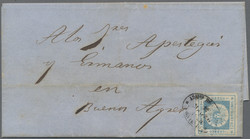 A los Sres Apestegui
y Ermanos
en
Buenos Ayres